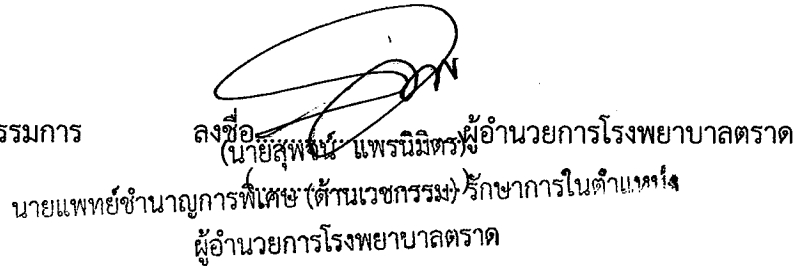 รรมการ ลงชื่อ ผู้อำนวยการโรงพยาบาลตราด
(นายสุพจน์ แพรนิมิตร)
นายแพทย์ชำนาญการพิเศษ (ด้านเวชกรรม) รักษาการในตำแหน่ง
ผู้อำนวยการโรงพยาบาลตราด